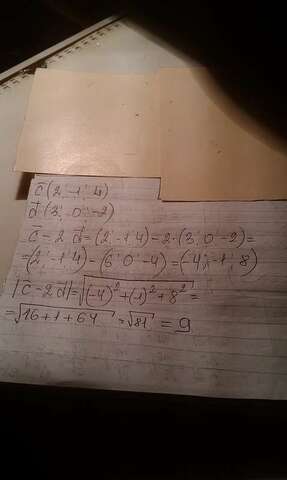 c̄ (2; -1; 4)
d̄ (3; 0; -2)
c̄ = 2 d̄ = (2; -1 4) = 2 · (3; 0 -2) =
= (2; -1; 4) - (6; 0; -4) = (-4; -1; 8)
|c̄ - 2 d̄| = √(-4)² + (1)² + 8² =
= √16 + 1 + 64 = √81 = 9